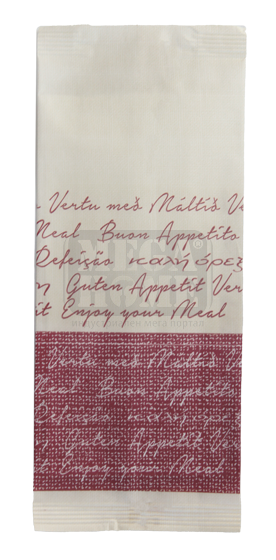 Vertu með Máltíð Ve
Meal Buon Appetito
Refeição καλή όρεξ
Guten Appetit Ver
it Enjoy your Meal
Vertu með Máltíð Ve
Meal Buon Appetito
Refeição καλή όρεξ
Guten Appetit Ver
it Enjoy your Meal